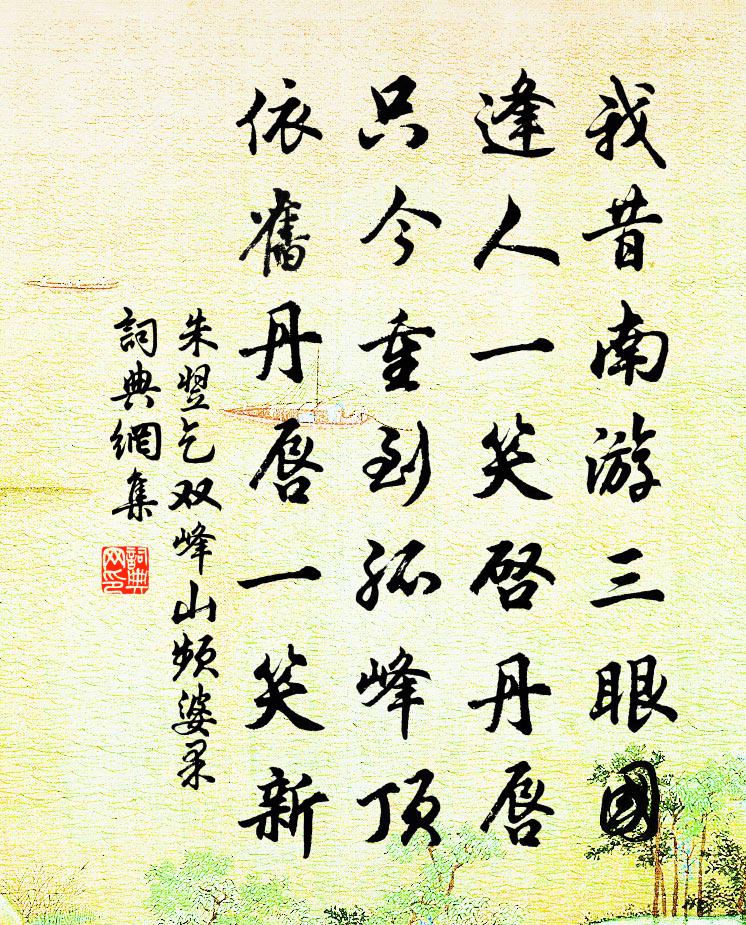 我昔南游三眼國
逢人一笑啓丹唇
只今重到孤峰頂
依舊丹唇一笑新
朱翌乞双峰山頻婆果
詞典網集
詞典
网印